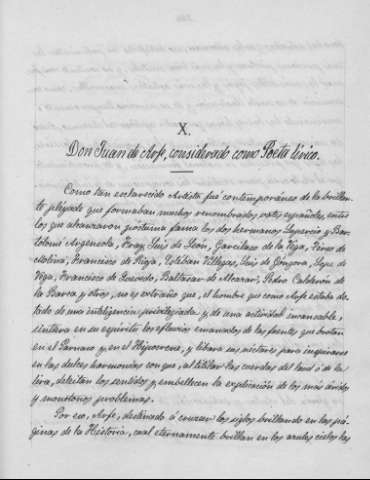 X.
Don Juan de Arfe, considerado como Poeta lírico.
Como tan esclarecido Artista fué contemporáneo de la brillan-
te pléyade que formaban muchos renombrados vates españoles, entre
los que alcanzaron póstuma fama los dos hermanos Lupercio y Bar-
tolomé Argensola, Fray Luis de León, Garcilaso de la Vega, Tirso de
Molina, Francisco de Rioja, Esteban Villegas, Luis de Góngora, Lope de
Vega, Francisco de Quevedo, Baltasar de Alcázar, Pedro Calderón de
la Barca y otros, no es extraño que, el hombre que como Arfe estaba do-
tado de una inteligencia privilegiada y de una actividad incansable,
sintiera en su espíritu los efluvios emanados de las fuentes que brotan
en el Parnaso y en el Hipocrene, y libara sus néctares para inspirarse
en las dulces harmonías con que, al titilar las cuerdas del laúd ó de la
lira, deleitan los sentidos y embellecen la explicación de los más áridos
y monótonos problemas.
Por eso, Arfe, destinado á cruzar los siglos brillando en las pá-
ginas de la Historia, cual eternamente brillan en los azules cielos las